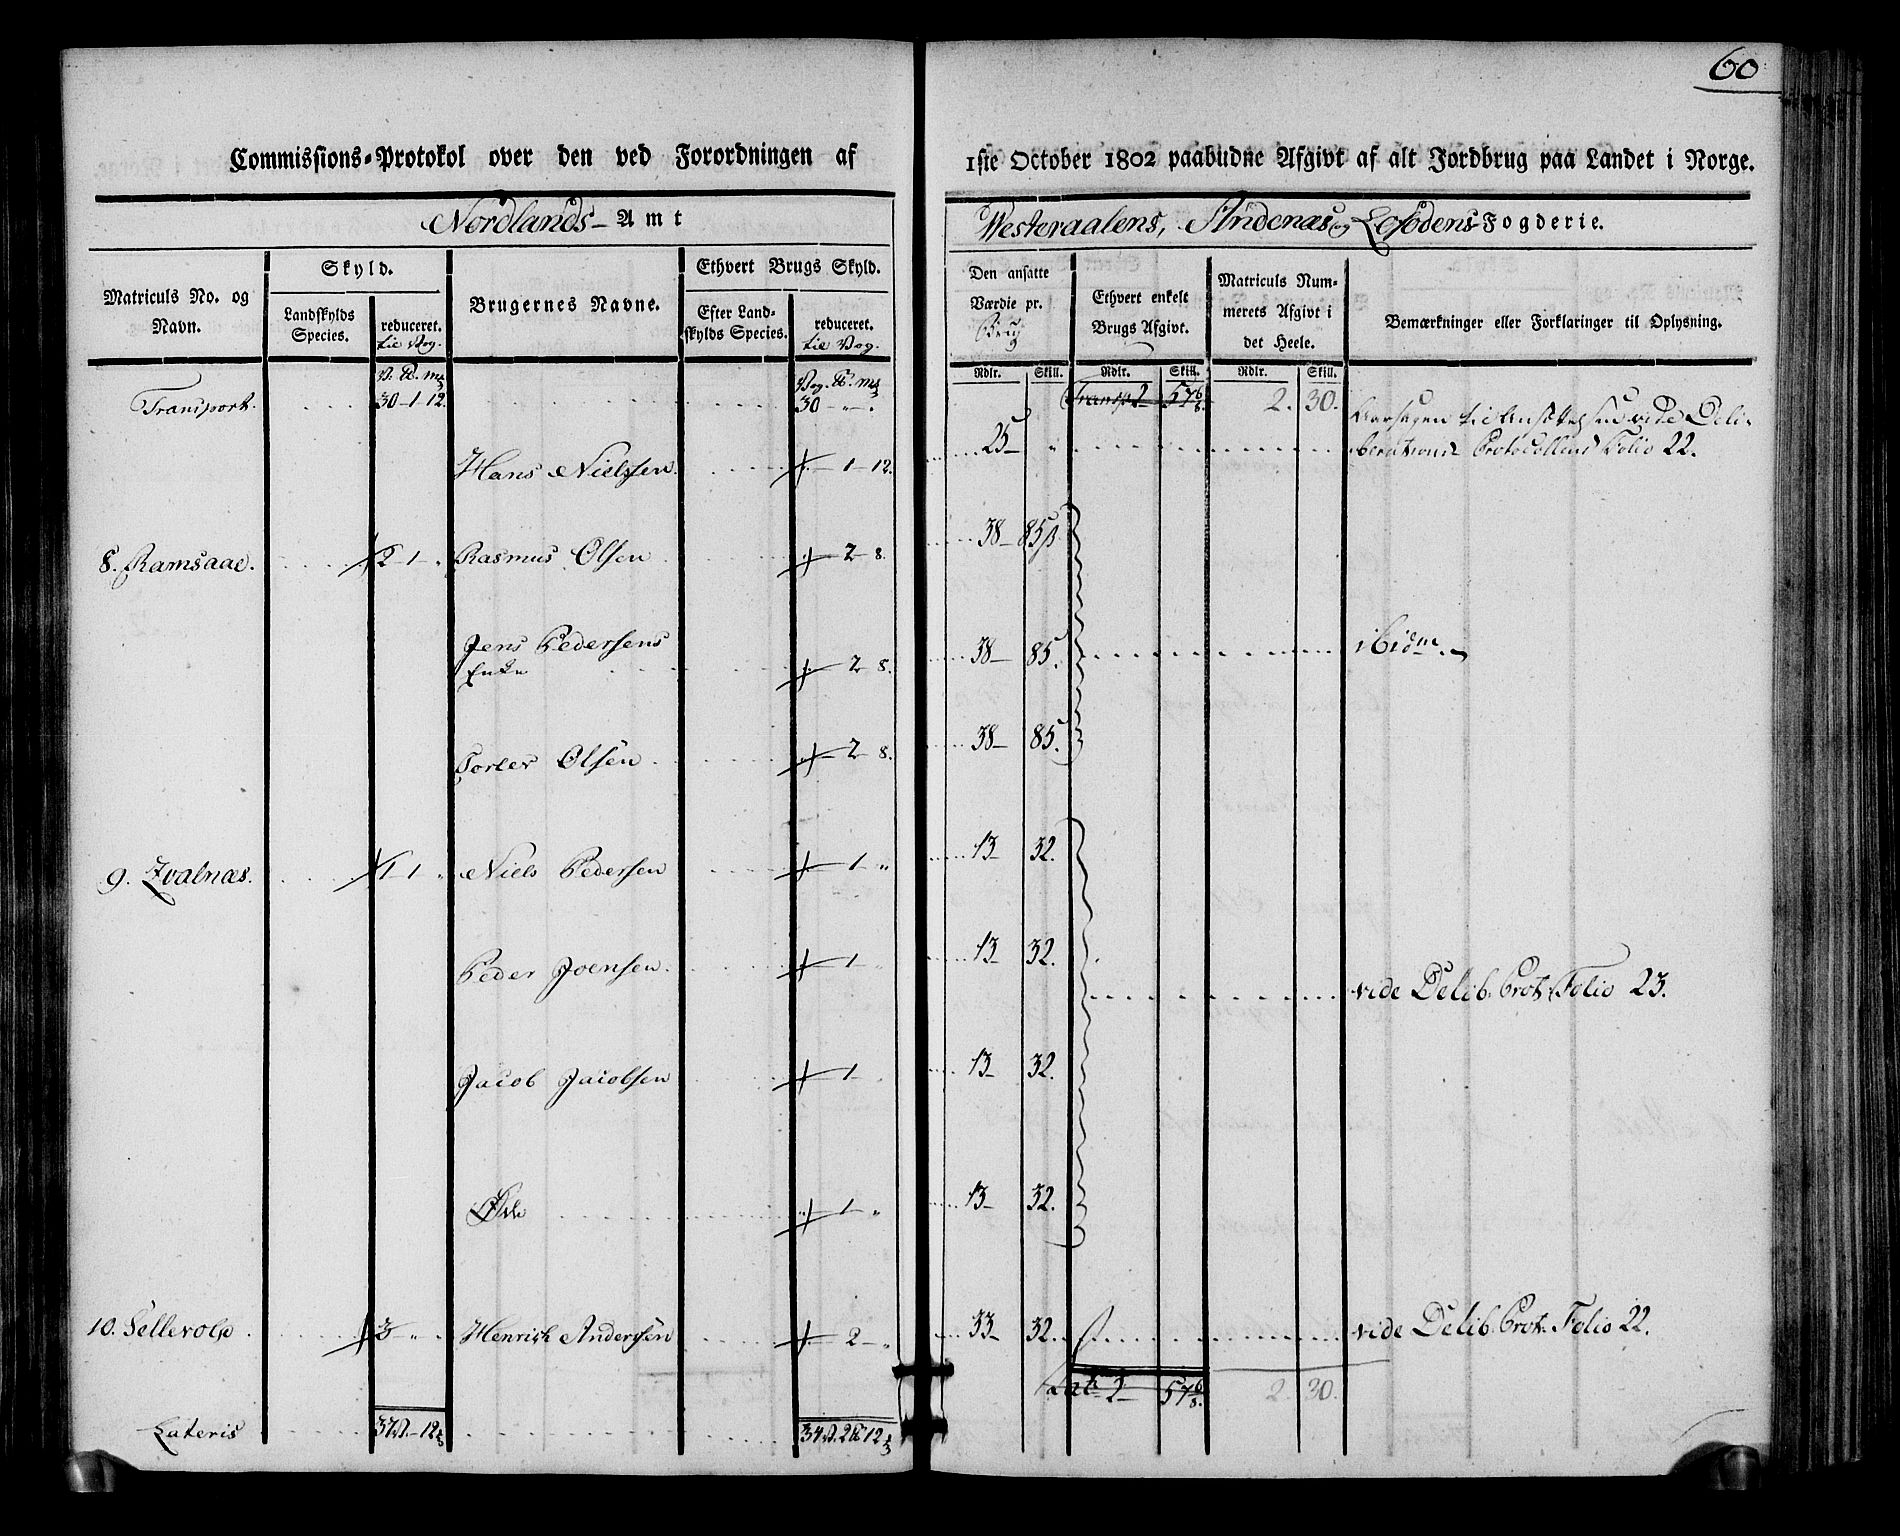 60
Commissions-Protokol over den ved Forordningen af 1ste October 1802 paabudne Afgivt af alt Jordbrug paa Landet i Norge.
Nordlands-Amt
Westeraalens, Andenæs og Lofodens-Fogderie.
Matriculs No. og Navn.
Skyld.
Landskylds Species.
reduceret. til Vog.
Brugernes Navne.
Ethvert Brugs Skyld.
Efter Landskylds Species.
reduceret. til Vog.
Den ansatte Værdie pr. Brug
Ethvert enkelt Brugs Afgivt.
Matriculs Nummerets Afgivt i det Heele.
Bemærkninger eller Forklaringer til Oplysning.
Rdlr. Skill. Rdlr. Skill. Rdlr. Skill.
Transport. 30-1-12. 30 Transp 2 57 6/8. 2. 30.
Hans Nielssen. 1-12. 25 Aarsagen til Ansættelsen vide Deli-
berations Protocollens Folio 22.
8. Ramsaae. 2-1 Rasmus Olsen 2-8. 38-85
Jens Pedersens
Enke 2-8. 38-85. ibidem.
Torler Olsen 2-8. 38-85.
9. Zvalnæs. 1-1 Niels Pedersen 1 13-32.
Peder Joensen. 1 13-32.
vide Delib. Prot. Folio 23.
Jacob Jacobsen 1 13-32.
Øde 1 13-32.
10. Sellevold 3 Henrich Anderssen 2 33-32. vide Delib. Prot. Folio 22.
Lat. 2 57 6/8. 2. 30.
Lateris 37 V.-12 34 V. 2 12